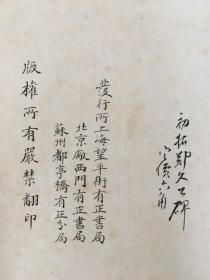 初拓鄭文公碑
定價六角
發行所上海望平街有正書局
北京廠西門有正書局
蘇州都亭橋有正分局
版權所有嚴禁翻印